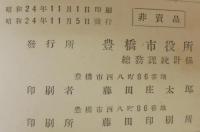 昭和24年11月1日印刷
昭和24年11月5日発行
非賣品
発行所 豊橋市役所
総務課統計係
豊橋市西八町86番地
印刷者 藤田庄太郎
豊橋市西八町86番地
印刷所 藤田印刷所